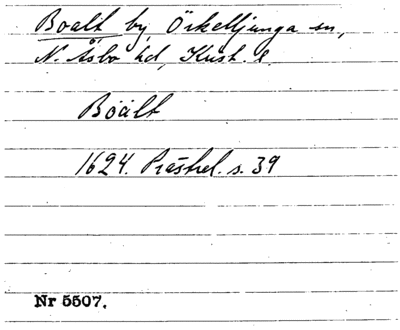 Boalt by Örkelljunga sn,
N. Åsbo hd, Krist. l.
Böält
1624. Prästrel. s. 39
Nr 5507.